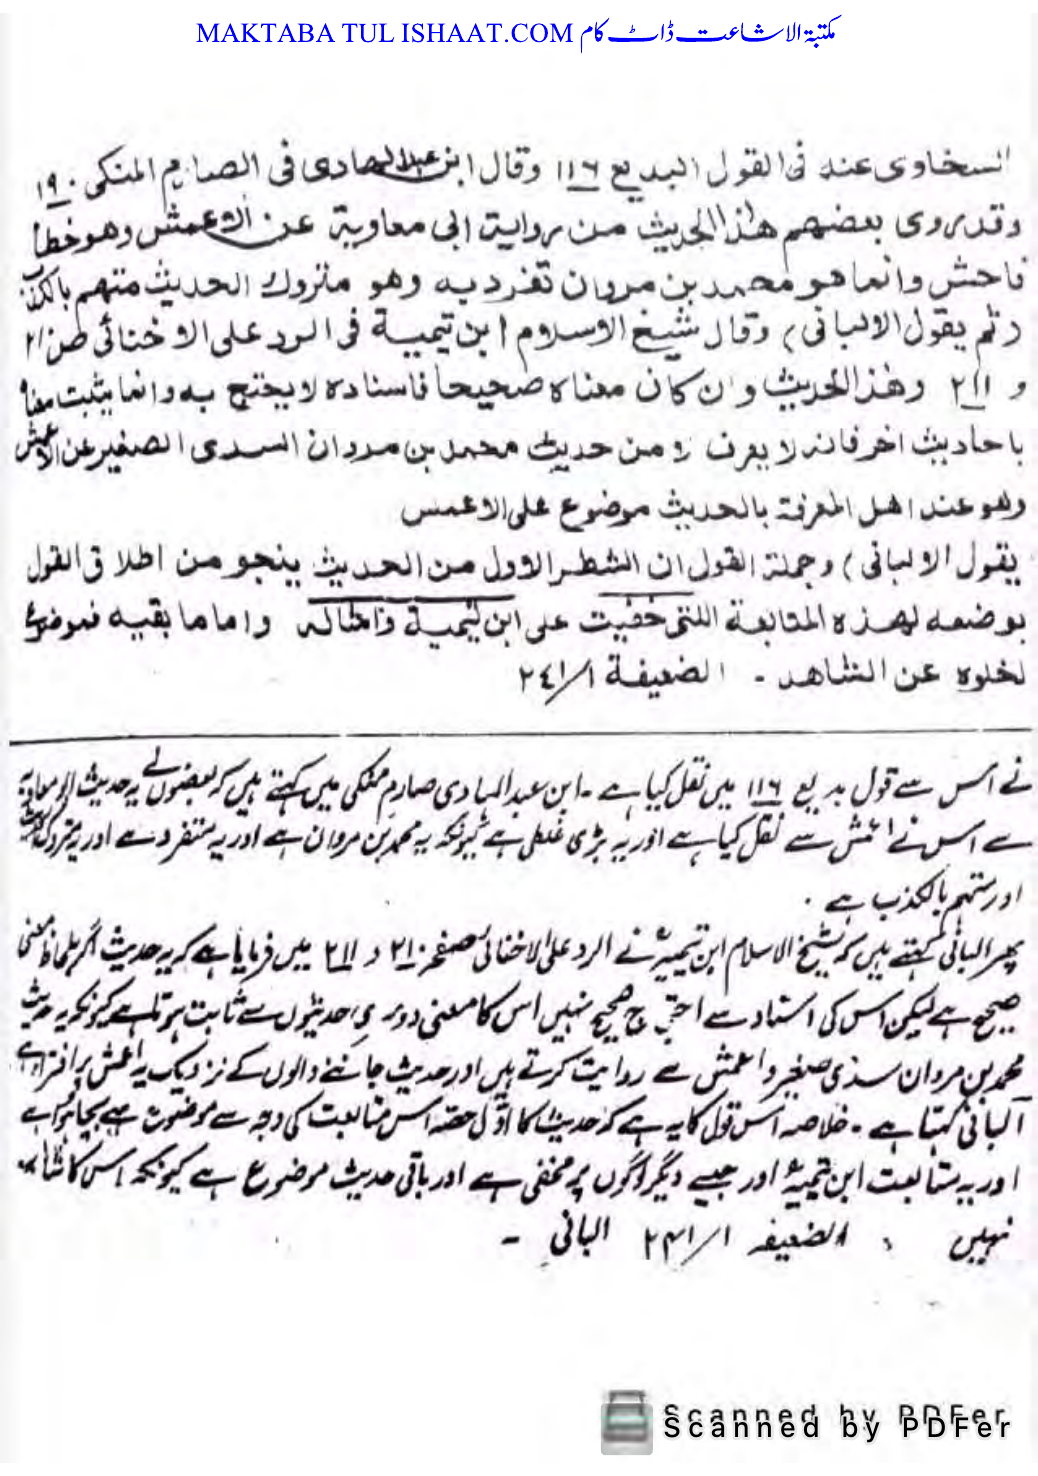 MAKTABA TUL ISHAAT.COM مکتبۃ الاشاعت ڈاٹ کام
السخاوی عنہ فی القول البدیع ۱۱۶ وقال ابن عبدالہادی فی الصارم المنکی ۱۹۰
وقد روی بعضھم ھذا الحدیث من روایۃ ابی معاویۃ عن الاعمش وھو خطأ
فاحش وانما ھو محمد بن مروان تفرد بہ وھو متروک الحدیث متھم بالکذب
(ثم یقول الالبانی) وقال شیخ الاسلام ابن تیمیۃ فی الرد علی الاخنائی ص ۲۱۰
و ۲۱۱ وھذا الحدیث وان کان معناہ صحیحا فاسنادہ لا یحتج بہ وانما یثبت معناہ
باحادیث اخر فانہ لا یعرف الا من حدیث محمد بن مروان السدی الصغیر عن الاعمش
وھو عند اھل المعرفۃ بالحدیث موضوع علی الاعمش
یقول الالبانی) وجملۃ القول ان الشطر الاول من الحدیث ینجو من اطلاق القول
بوضعہ لھذہ المتابعۃ اللتی خفیت علی ابن تیمیۃ وامثالہ واما ما بقیہ فموضوع
لخلوہ عن الشاھد ۔ الضعیفۃ ۲٤۱/۱
نے اس سے قول بدیع ۱۱۶ میں نقل کیا ہے ۔ ابن عبدالہادی صارم منکی میں کہتے ہیں کہ بعضوں نے یہ حدیث ابو معاویہ
سے اس نے اعمش سے نقل کیا ہے اور یہ بڑی غلطی ہے کیونکہ یہ محمد بن مروان ہے اور یہ متفرد ہے اور یہ متروک الحدیث
اور متہم بالکذب ہے ۔
پھر البانی کہتے ہیں کہ شیخ الاسلام ابن تیمیہؒ نے الرد علی الاخنائی صفحہ ۲۱۰ و ۲۱۱ میں فرمایا ہے کہ یہ حدیث اگر بلحاظ معنی
صحیح ہے لیکن اس کی اسناد سے احتجاج صحیح نہیں اس کا معنی دوسری احدیثوں سے ثابت ہوتا ہے کیونکہ یہ حدیث
محمد بن مروان سدی صغیر و اعمش سے روایت کرتے ہیں اور حدیث جاننے والوں کے نزدیک یہ اعمش پر افتراء ہے
البانی کہتا ہے ۔ خلاصہ اس قول کا یہ ہے کہ حدیث کا اوّل حصہ اس متابعت کی وجہ سے موضوع سے بچا ہوا ہے
اور یہ متابعت ابن تیمیہؒ اور جیسے دیگر لوگوں پر مخفی ہے اور باقی حدیث موضوع ہے کیونکہ اس کا شاہد
نہیں ۔ الضعیفہ ۲۴۱/۱ البانی ۔
Scanned by PDFer